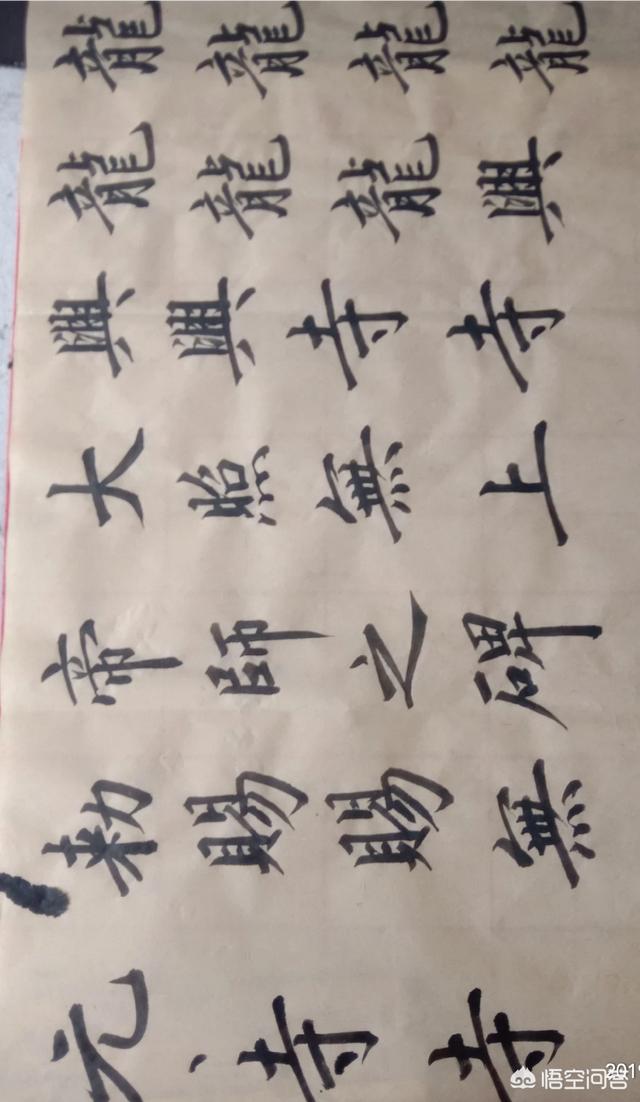 龍龍龍龍
龍龍龍興
興興寺寺
大照無上
帝師之碑
勅賜賜無
元寺寺
2019
悟空问答